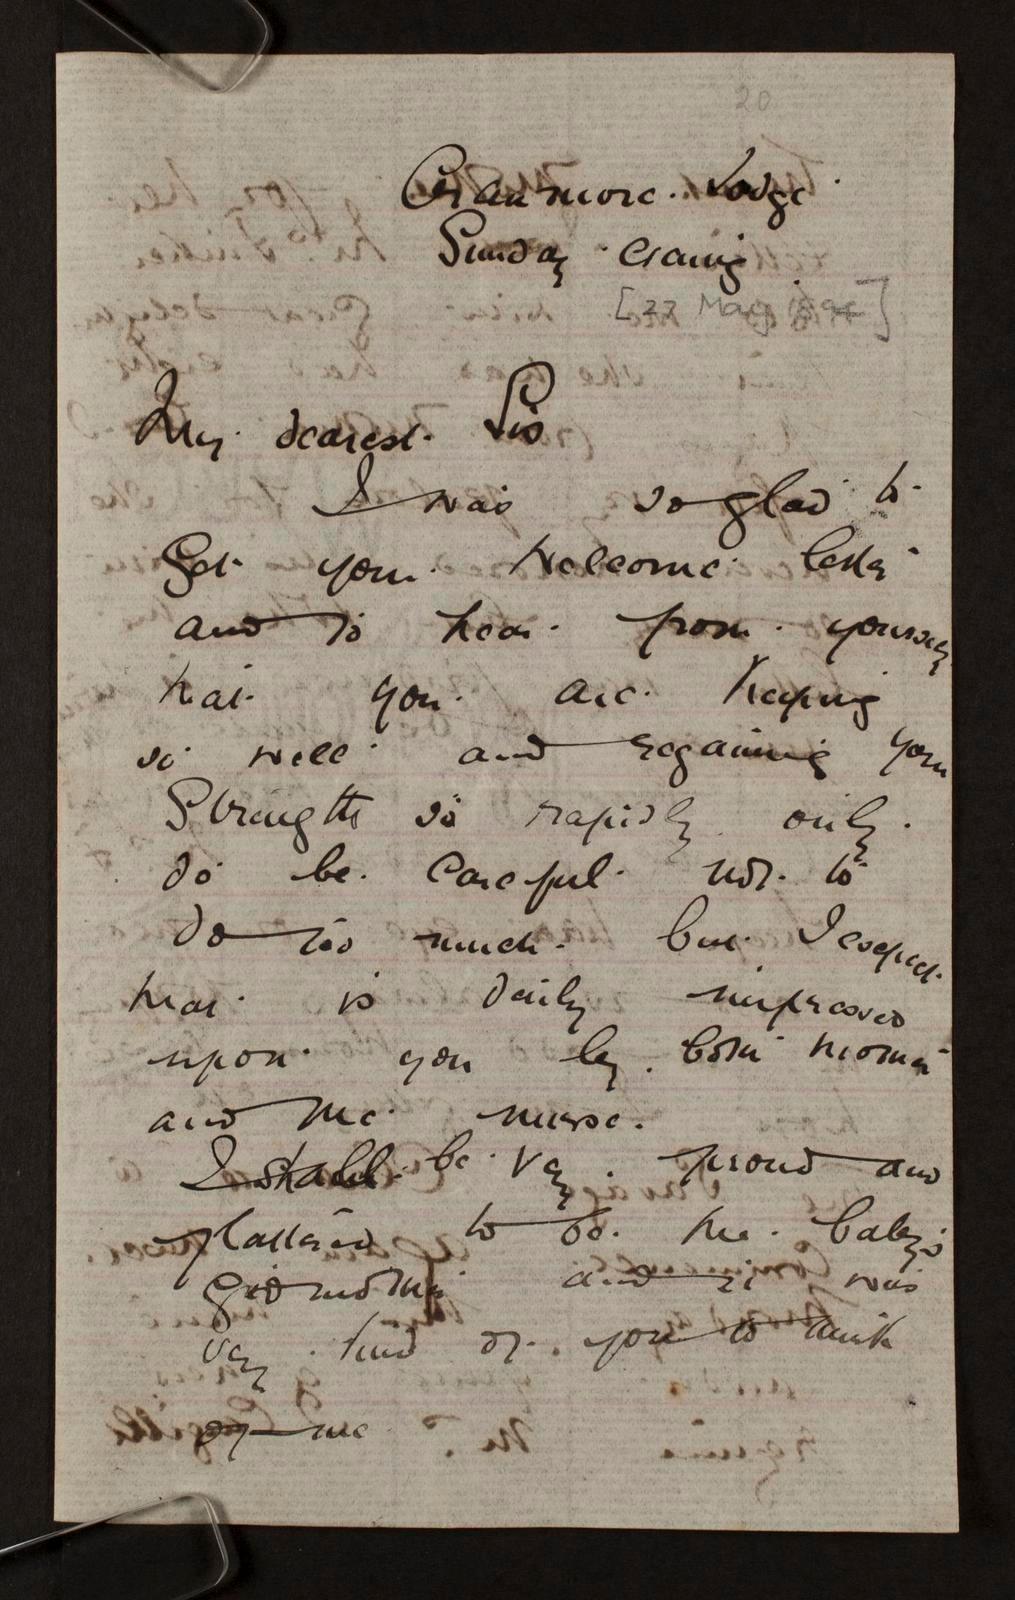 20
Cranmore. Lodge
Sunday evening
[27 May 1894]
My dearest Sis
I was so glad to
get your welcome letter
and to hear from yourself
that you are keeping
so well and regaining your
Strength so rapidly only
do be careful not to
do too much but I expect
that is daily impressed
upon you by both mother
and the nurse.
I shall be very proud and
flattered to be the baby's
godmother and it was
very kind of you to think
of me